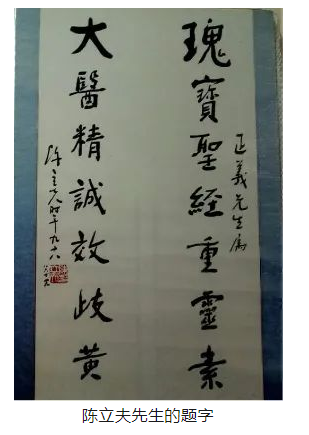 正義先生属
瑰寶聖經重靈素
大醫精誠效歧黃
陳立夫时年九十八
陈立夫先生的题字